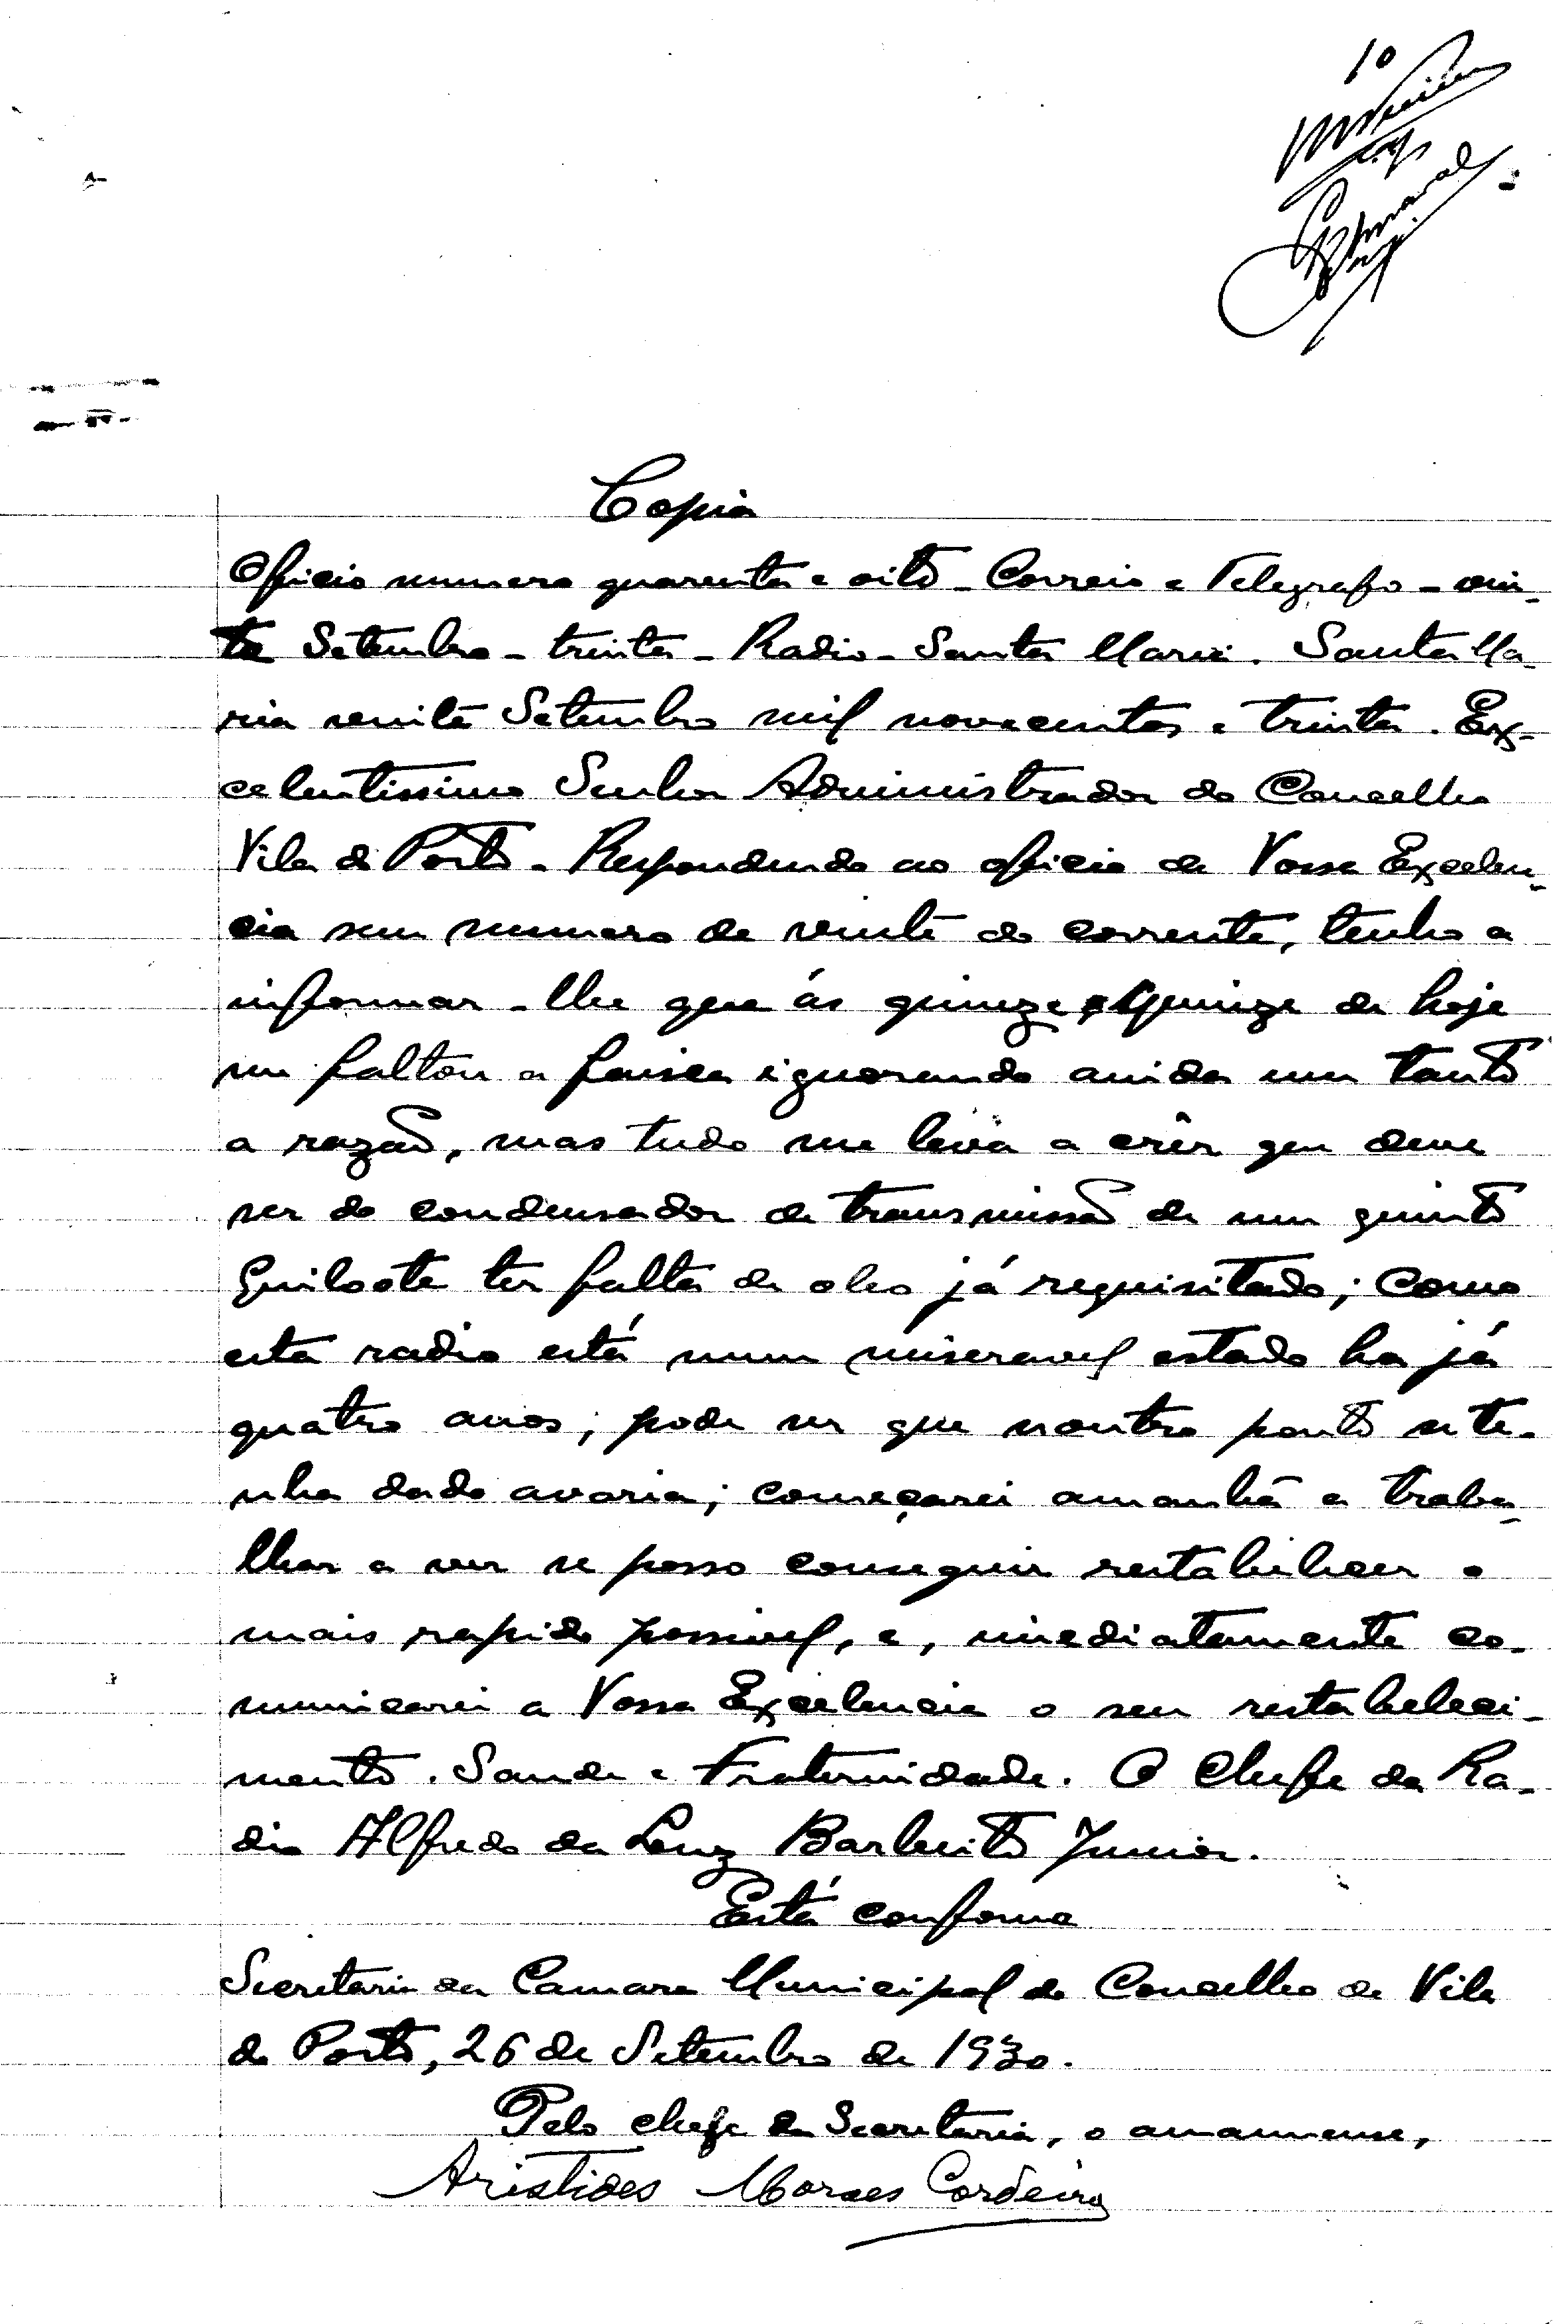 10
Copia
Oficio numero quarenta e oito - Correio e Telegrafo - vin-
te Setembro - trinta - Radio - Santa Maria. Santa Ma-
ria vinte Setembro mil novecentos e trinta. Ex-
celentissimo Senhor Administrador do Concelho
Vila do Porto - Respondendo ao oficio de Vossa Excelen-
cia sem numero de vinte do corrente, tenho a
informar-lhe que ás quinze e quinze de hoje
me faltou a faisca ignorando ainda um tanto
a razão, mas tudo me leva a crêr que deve
ser do condensador de transmissão de um quinto
Quiloate ter falta de oleo já requisitado; como
esta radio está num miseravel estado ha já
quatro anos; pode ser que noutro ponto se te-
nha dado avaria; começarei amanhã a traba-
lhar a ver se posso conseguir restabelecer o
mais rapido possivel, e, imediatamente co-
municarei a Vossa Excelencia o seu restabeleci-
mento. Saude e Fraternidade. O Chefe da Ra-
dio Alfredo da Luz Barbeito Junior.
Está conforme
Secretaria da Camara Municipal do Concelho de Vila
do Porto, 26 de Setembro de 1930.
Pelo chefe da Secretaria, o amanuense,
Aristides Moraes Cordeiro